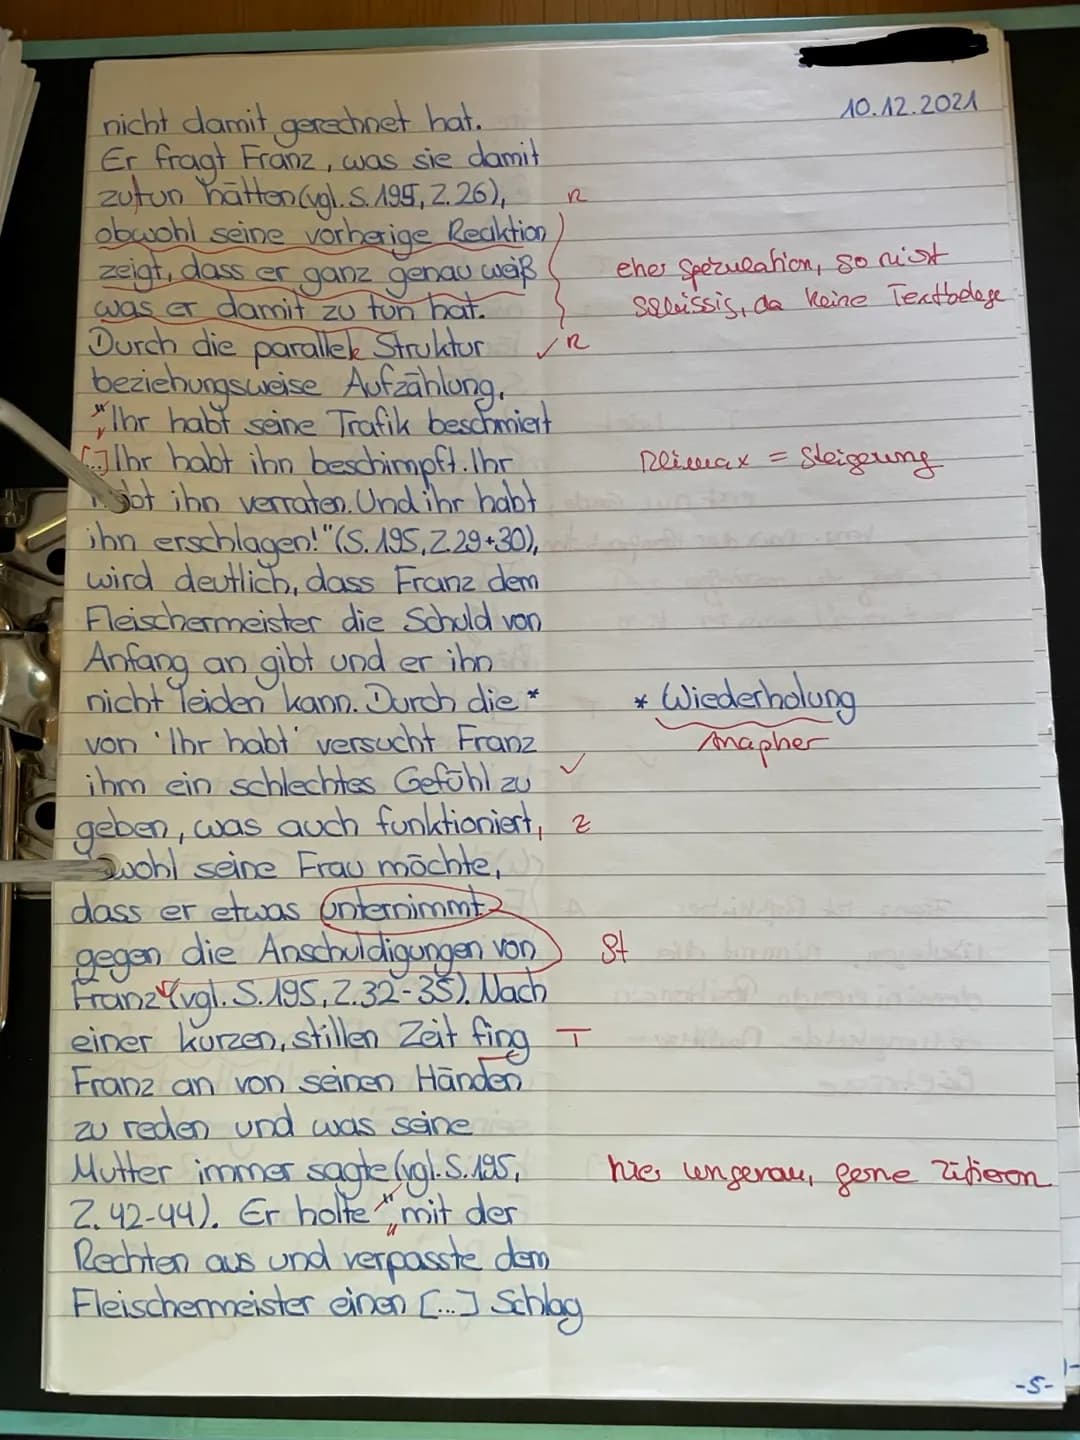 10.12.2021
nicht damit gerechnet hat.
Er fragt Franz, was sie damit
zutun hätten (vgl. S. 195, Z. 26), R
obwohl seine vorherige Reaktion
zeigt, dass er ganz genau weiß
was er damit zu tun hat.
eher Spekulation, so nicht
schlüssig, da keine Textbelege
Durch die parallele Struktur ✓ R
beziehungsweise Aufzählung,
"Ihr habt seine Trafik beschmiert
[...] Ihr habt ihn beschimpft. Ihr
Klimax = Steigerung
ihn verraten. Und ihr habt
ihn erschlagen!" (S. 195, Z. 29+30),
wird deutlich, dass Franz dem
Fleischermeister die Schuld von
Anfang an gibt und er ihn
nicht leiden kann. Durch die *
* Wiederholung
Anapher
von 'Ihr habt' versucht Franz
ihm ein schlechtes Gefühl zu ✓
geben, was auch funktioniert, Z
seine Frau möchte,
dass er etwas unternimmt
gegen die Anschuldigungen von St
Franz (vgl. S. 195, Z. 32-35). Nach
einer kurzen, stillen Zeit fing T
Franz an von seinen Händen
zu reden und was seine
Mutter immer sagte (vgl. S. 195,
hier ungenau, gerne zitieren
Z. 42-44). Er holte "mit der
Rechten aus und verpasste dem
Fleischermeister einen [...] Schlag
-5-